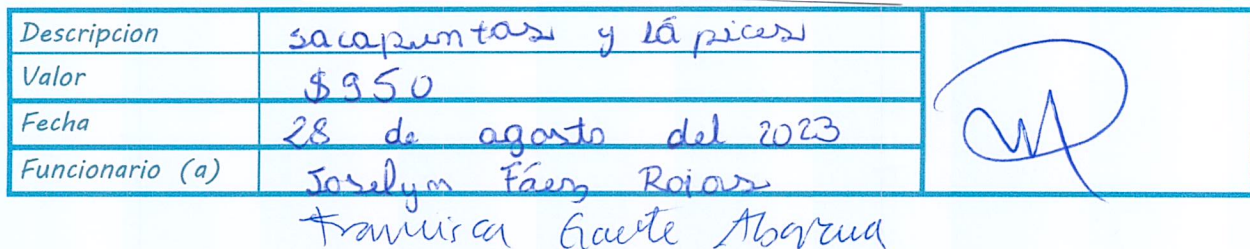 Descripcion sacapuntas y lápices
Valor $950
Fecha 28 de agosto del 2023
Funcionario (a) Joselyn Fáez Rojas
Francisca Gaete Abarzua